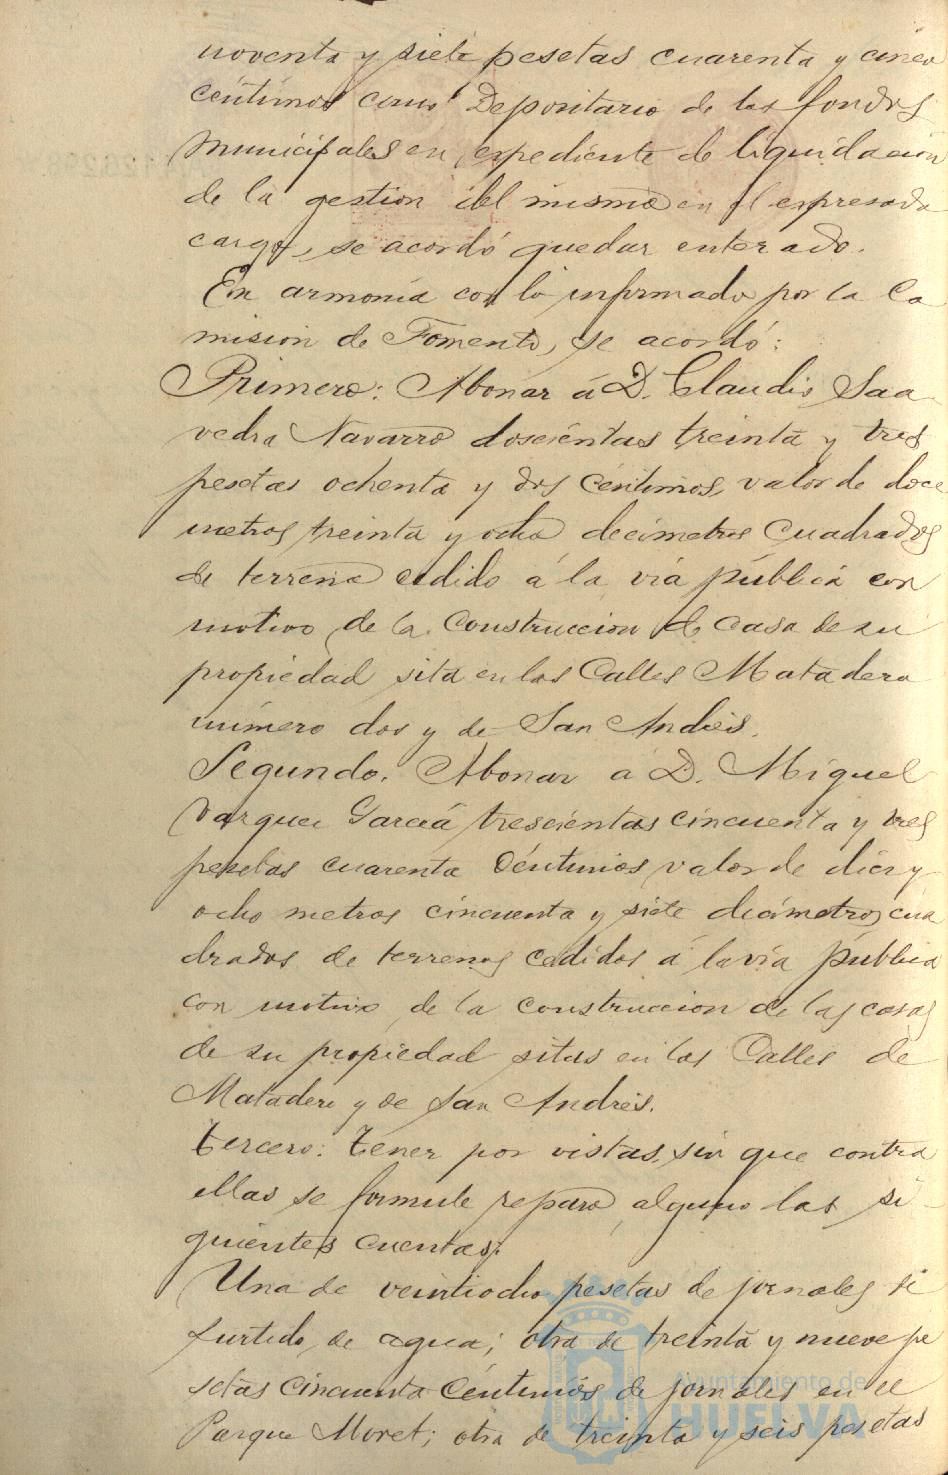 noventa y siete pesetas cuarenta y cinco
céntimos como Depositario de los fondos
municipales en expediente de liquidación
de la gestion del mismo en el expresado
cargo, se acordó quedar enterado.
En armonía con lo informado por la Co
mision de Fomento, se acordó:
Primero: Abonar á D. Claudio Saa
vedra Navarro doscientas treinta y tres
pesetas ochenta y dos céntimos, valor de doce
metros treinta y ocho decímetros cuadrados
de terreno cedido á la vía pública con
motivo de la construccion de casa de su
propiedad sita en las Calles Matadero
número dos y de San Andrés.
Segundo. Abonar á D. Miguel
Vazquez García trescientas cincuenta y tres
pesetas cuarenta céntimos valor de diez y
ocho metros cincuenta y siete decímetros cua
drados de terrenos cedidos á la vía pública
con motivo de la construccion de las casas
de su propiedad sitas en las Calles de
Matadero y de San Andrés.
Tercero: Tener por vistas, sin que contra
ellas se formule reparo alguno las si
guientes cuentas:
Una de veintiocho pesetas de jornales de
surtido de agua; otra de treinta y nueve pe
setas cincuenta céntimos de jornales en el
Parque Moret; otra de treinta y seis pesetas
Ayuntamiento de
HUELVA